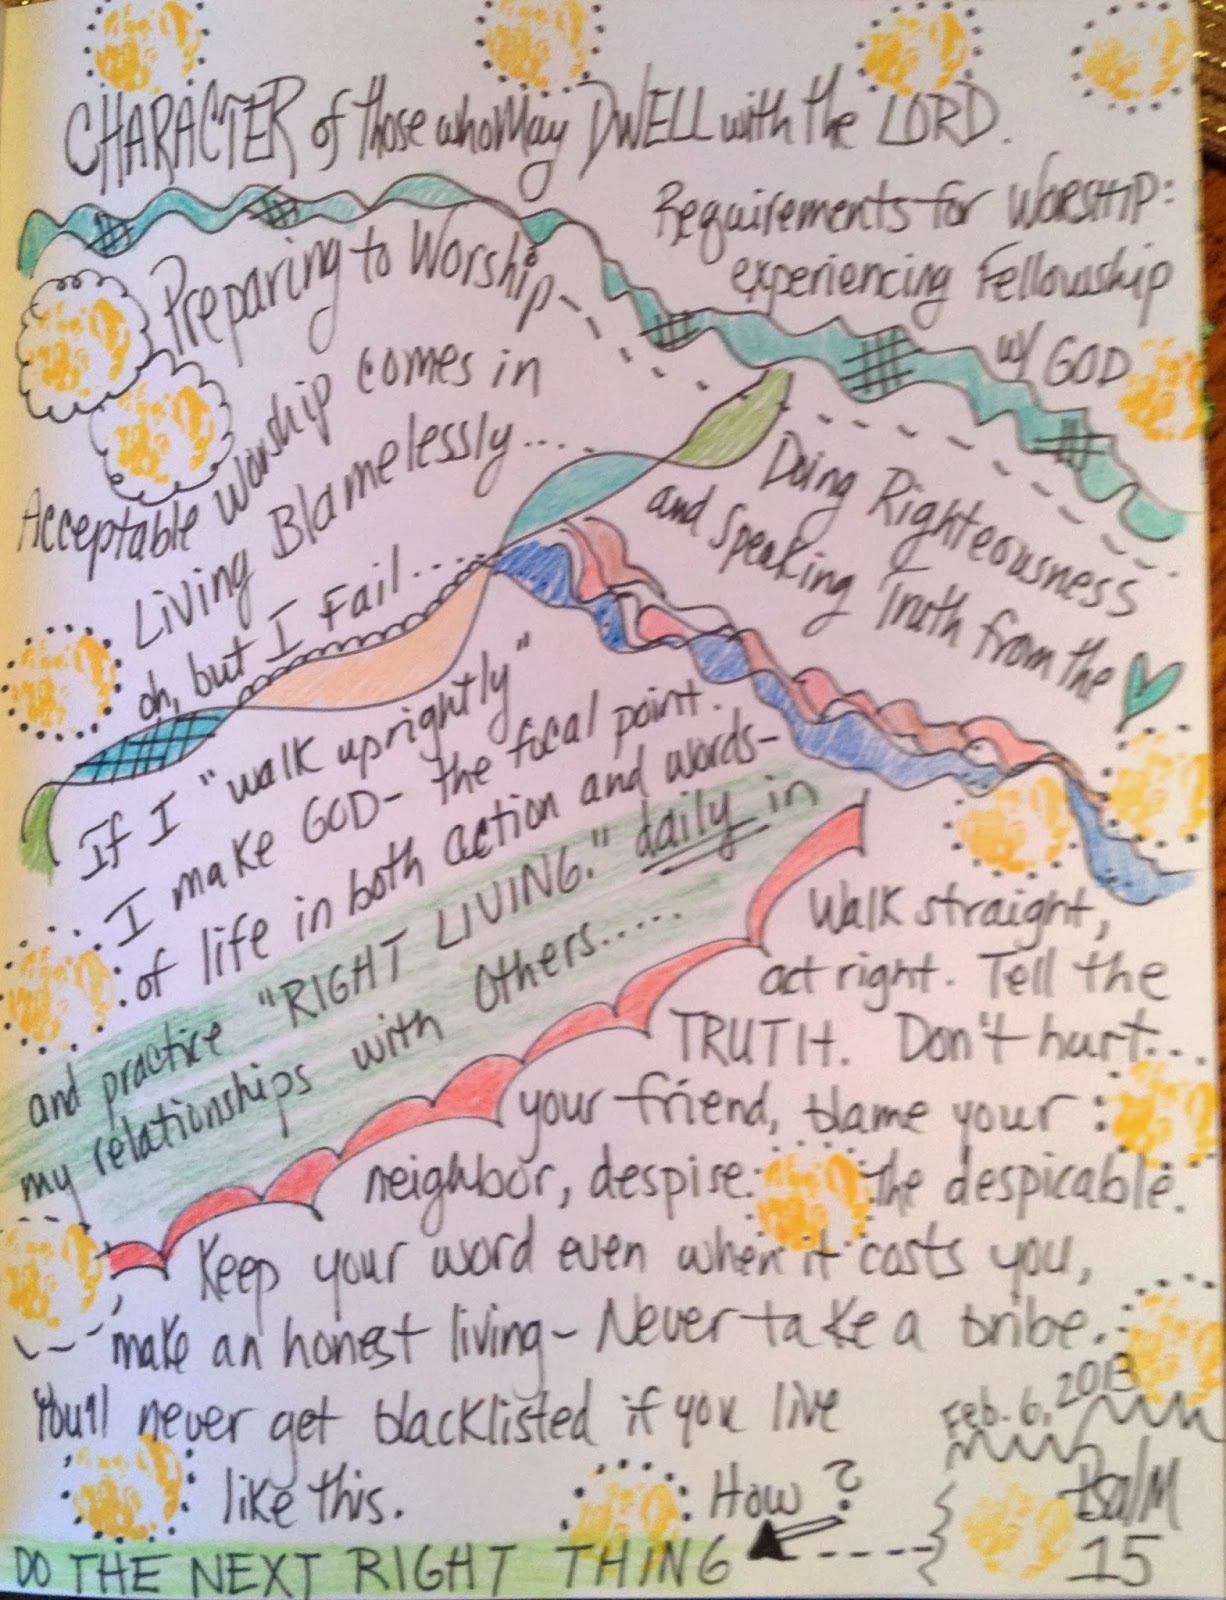 CHARACTER of those who May DWELL with the LORD.
Requirements for WORSHIP:
experiencing Fellowship
w/ GOD
Preparing to Worship
Acceptable worship comes in
Living Blamelessly....
oh, but I Fail....
Doing Righteousness
and speaking Truth from the
If I "walk uprightly"
I make GOD- the focal point.
of life in both action and words-
and practice "RIGHT LIVING." daily in
my relationships with others.....
Walk straight,
act right. Tell the
TRUTH. Don't hurt...
your friend, blame your
neighbor, despise the despicable.
Keep your word even when it costs you,
make an honest living- Never take a bribe.
You'll never get blacklisted if you live
like this.
How?
DO THE NEXT RIGHT THING
Feb. 6, 2013
Psalm
15